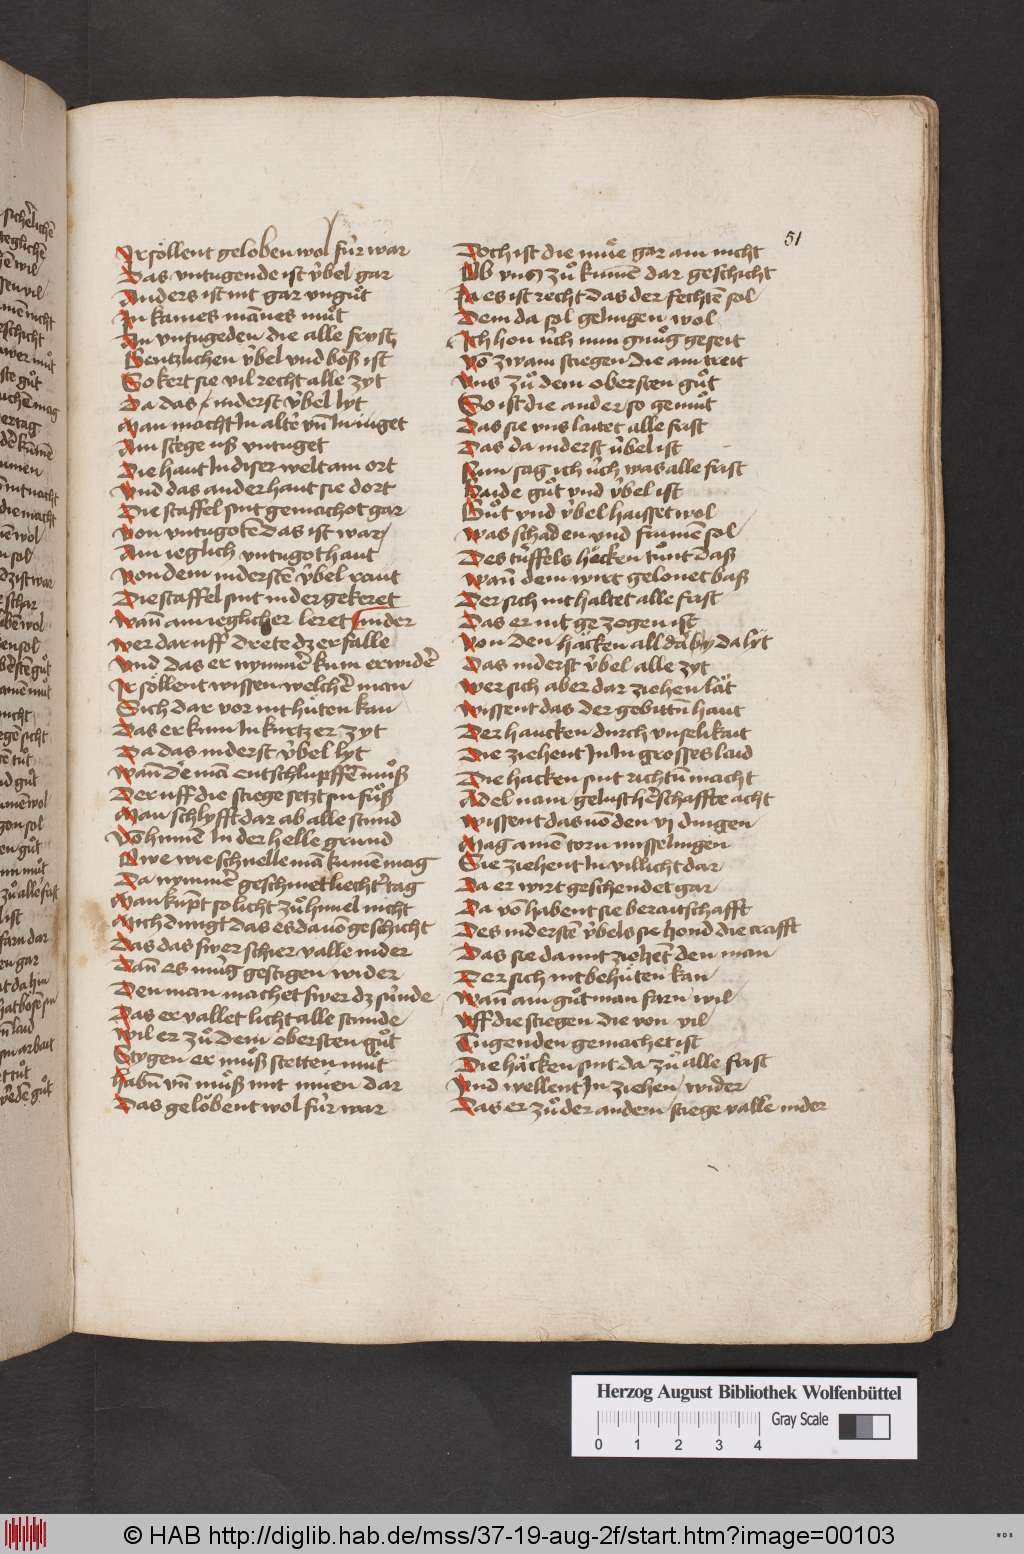 51
Ir söllent geloben wol für war
Das vntugende ist v̈bel gar
Anders ist nit gar vngůt
In kaines mānes můt
An vntugeden die alle fryst
Gentzlichen v̈bel vnd böß ist
So kert sie vil recht alle zyt
Da das niderst v̈bel lyt
Man macht In alte vn̄ In iuget
Ain stege uß vntuget
Die haut In diser welt am ort
Vnd das ander haut sie dort
Die staffel sint gemachot gar
Von vntugotē das ist war
Ain ieglich vntugot haut
Von dem nidersten v̈bel
Die staffel sint nider gekeret
Wan̄ ain ieglicher leret nider
Wer dar uff drete dz er falle
Vnd das er nymmē kum erwider
Ir söllent wissen welcher man
Sich dar vor nit hüten kan
Das er kum In kurtzer zyt
Da das niderst v̈bel lyt
Wan̄ dē man entschlupffē můß
Der uff die stiege setzt sin fůß
Man schlyfft dar ab alle stund
Vō himel In der helle grund
Owe wie schnelle mā kumē mag
Da nymmē geschinet liecht tag
Man kūpt so licht zů himel nicht
Mich dūngt das es dauō geschicht
Das das swer schier valle nider
Dan̄ es müg gestigen wider
Den man machet swer dz sünde
Das er vallet licht alle stunde
Wil er zů dem obersten gůt
Stygen er můß stetten můt
Habn̄ vn̄ můß mit müen dar
Das gelöbent wol für war
Doch ist die müe gar ain nicht
Ob vns zů kumē dar geschicht
Ja es ist recht das der fechtē sol
Dem da sol gelingen wol
Ich hon v̈ch nun gnůg geseit
Vō zwain stiegen die ain treit
Vns zů dem obersten gůt
So ist die ander so gemůt
Das sie vns laitet alle frist
Das da niderst v̈bel ist
Nun sag ich v̈ch was alle frist
Baide gůt vnd v̈bel ist
Gůt vnd v̈bel haisset wol
Was schaden vnd frumē sol
Des tüffels häcken tůnt daß
Wan̄ dem wirt gelonet baß
Der sich nit haltet alle frist
Das er nit gezogen ist
Von den häcken all da by da lyt
Das niderst v̈bel alle zyt
Wer sich aber dar ziehen lät
Wissent das der gebittn̄ haut
Der haucken durch vnselikait
Die ziehent In In grosses laid
Die hacken sint richtū macht
Adel nam gelust herschaffte acht
Wissent das uō den vj dingen
Mag ainē torn misselingen
Sie ziehent In villicht dar
Da er wirt geschendet gar
Da vō habent sie beraitschafft
Des niderstē v̈bels sie hond die crafft
Das sie da mit ziehēt den man
Der sich nit behüten kan
Wan̄ ain gůt man farn wil
Vff die stiegen die von vil
Tugenden gemachet ist
Die häcken sint da zů alle frist
Vnd wellent In ziehen wider
Das er zů der andern stiege valle nider
Herzog August Bibliothek Wolfenbüttel
Gray Scale
0 1 2 3 4
© HAB http://diglib.hab.de/mss/37-19-aug-2f/start.htm?image=00103